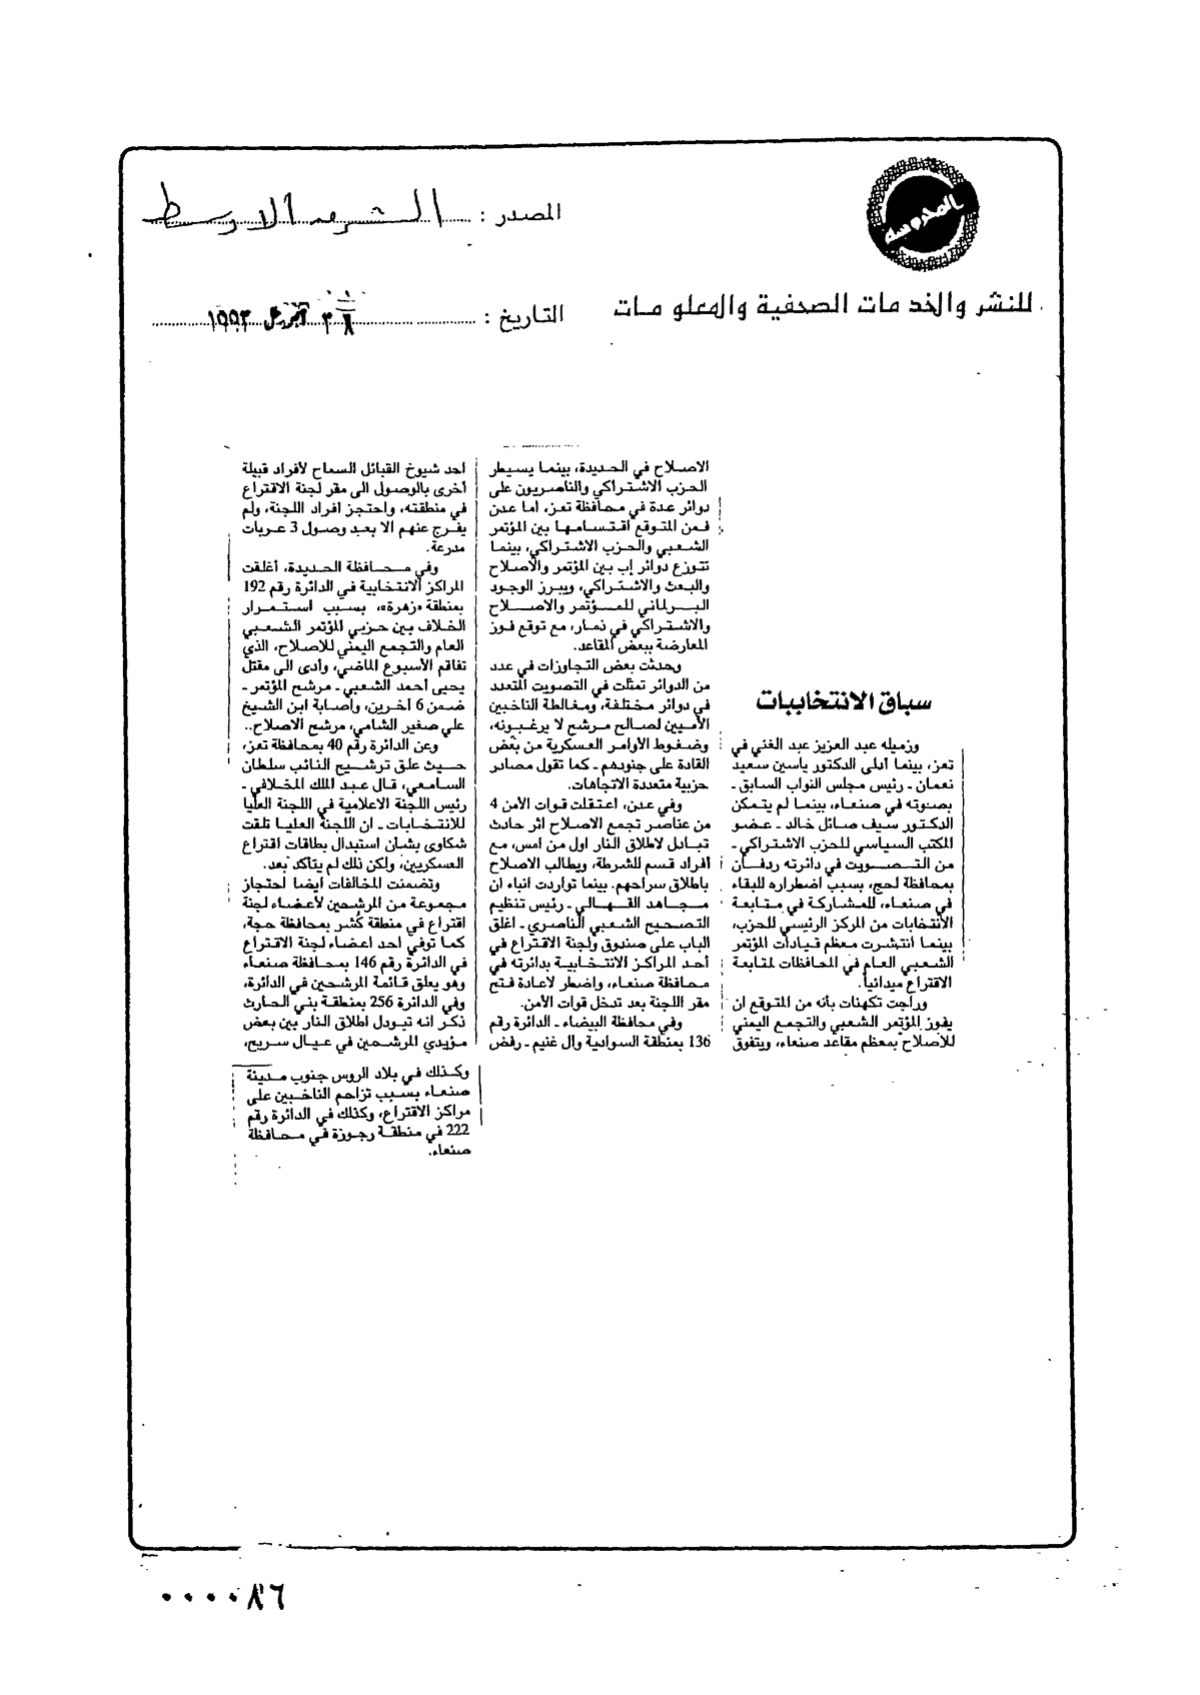 المحروسة
للنشر والخدمات الصحفية والمعلومات
المصدر : الشرق الاوسط
التاريخ : ٢٨ ابريل ١٩٩٣
سباق الانتخابات
وزميله عبد العزيز عبد الغني في
تعز، بينما أدلى الدكتور ياسين سعيد
نعمان - رئيس مجلس النواب السابق -
بصوته في صنعاء، بينما لم يتمكن
الدكتور سيف صائل خالد - عضو
المكتب السياسي للحزب الاشتراكي -
من التصويت في دائرته ردفان
بمحافظة لحج، بسبب اضطراره للبقاء
في صنعاء، للمشاركة في متابعة
الانتخابات من المركز الرئيسي للحزب،
بينما انتشرت معظم قيادات المؤتمر
الشعبي العام في المحافظات لمتابعة
الاقتراع ميدانياً.
وراجت تكهنات بأنه من المتوقع ان
يفوز المؤتمر الشعبي والتجمع اليمني
للاصلاح بمعظم مقاعد صنعاء، ويتفوق
الاصلاح في الحديدة، بينما يسيطر
الحزب الاشتراكي والناصريون على
دوائر عدة في محافظة تعز، اما عدن
فمن المتوقع اقتسامها بين المؤتمر
الشعبي والحزب الاشتراكي، بينما
تتوزع دوائر إب بين المؤتمر والاصلاح
والبعث والاشتراكي، ويبرز الوجود
البرلماني للمؤتمر والاصلاح
والاشتراكي في ذمار، مع توقع فوز
المعارضة ببعض المقاعد.
وحدثت بعض التجاوزات في عدد
من الدوائر تمثلت في التصويت المتعدد
في دوائر مختلفة، ومغالطة الناخبين
الأميين لصالح مرشح لا يرغبونه،
وضغوط الأوامر العسكرية من بعض
القادة على جنودهم - كما تقول مصادر
حزبية متعددة الاتجاهات.
وفي عدن، اعتقلت قوات الأمن 4
من عناصر تجمع الاصلاح اثر حادث
تبادل لاطلاق النار اول من امس، مع
أفراد قسم للشرطة، ويطالب الاصلاح
باطلاق سراحهم. بينما تواردت انباء ان
مجاهد القهالي - رئيس تنظيم
التصحيح الشعبي الناصري - اغلق
الباب على صندوق ولجنة الاقتراع في
أحد المراكز الانتخابية بدائرته في
محافظة صنعاء، واضطر لاعادة فتح
مقر اللجنة بعد تدخل قوات الأمن.
وفي محافظة البيضاء - الدائرة رقم
136 بمنطقة السوادية وال غنيم - رفض
احد شيوخ القبائل السماح لأفراد قبيلة
أخرى بالوصول الى مقر لجنة الاقتراع
في منطقته، واحتجز افراد اللجنة، ولم
يفرج عنهم الا بعد وصول 3 عربات
مدرعة.
وفي محافظة الحديدة، أغلقت
المراكز الانتخابية في الدائرة رقم 192
بمنطقة «زهرة»، بسبب استمرار
الخلاف بين حزبي المؤتمر الشعبي
العام والتجمع اليمني للاصلاح، الذي
تفاقم الأسبوع الماضي، وأدى الى مقتل
يحيى أحمد الشعبي - مرشح المؤتمر -
ضمن 6 اخرين، واصابة ابن الشيخ
علي صغير الشامي، مرشح الاصلاح..
وعن الدائرة رقم 40 بمحافظة تعز،
حيث علق ترشيح النائب سلطان
السامعي، قال عبد الملك المخلافي -
رئيس اللجنة الاعلامية في اللجنة العليا
للانتخابات - ان اللجنة العليا تلقت
شكاوى بشان استبدال بطاقات اقتراع
العسكريين، ولكن ذلك لم يتأكد بعد.
وتضمنت المخالفات أيضا احتجاز
مجموعة من المرشحين لأعضاء لجنة
اقتراع في منطقة كُشر بمحافظة حجة،
كما توفي احد اعضاء لجنة الاقتراع
في الدائرة رقم 146 بمحافظة صنعاء
وهو يعلق قائمة المرشحين في الدائرة،
وفي الدائرة 256 بمنطقة بني الحارث
ذكر انه تبودل اطلاق النار بين بعض
مؤيدي المرشحين في عيال سريح،
وكذلك في بلاد الروس جنوب مدينة
صنعاء بسبب تزاحم الناخبين على
مراكز الاقتراع، وكذلك في الدائرة رقم
222 في منطقة رجوزة في محافظة
صنعاء.
٠٠٠٠٨٦